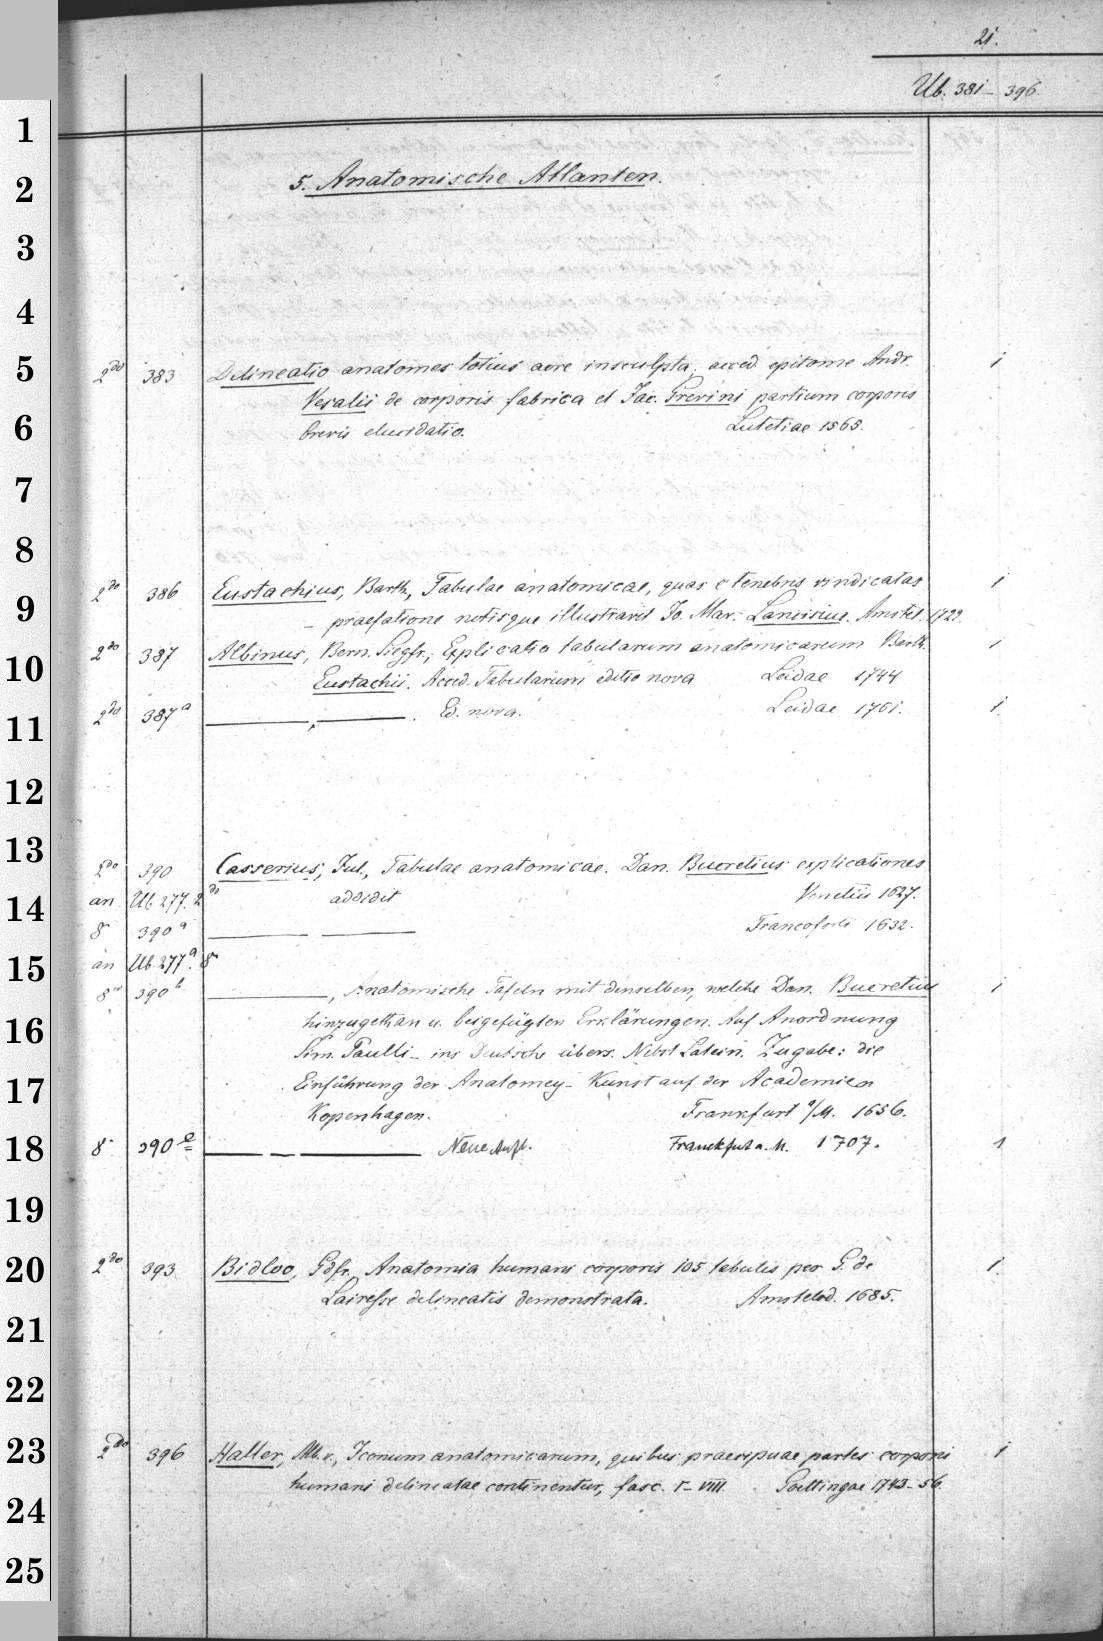 21.
Ub. 381-396.
1
5. Anatomische Atlanten.
2
3
4
5
2do 383 Delineatio anatomes totius aere insculpta, acced. epitome Andr. 1
Vesalii de corporis fabrica et Jac. Grevini partium corporis
6
brevis elucidatio. Lutetiae 1565.
7
8
2do 386 Eustachius, Barth., Tabulae anatomicae, quas e tenebris vindicatas 1
9
- praefatione notisque illustravit Jo. Mar. Lancisius. Amstel. 1722.
2do 387 Albinus, Bern. Siegfr., Explicatio tabularum anatomicarum Barth. 1
10
Eustachii. Acced. Tabularum editio nova Leidae 1744
2do 387a ——, ——. Ed. nova. Leidae 1761. 1
11
12
13
2do 390 Casserius, Jul., Tabulae anatomicae. Dan. Bucretius explicationes
an Ub 277. 2do addidit Venetiis 1627.
14
8° 390a —— —— Francoforti 1632.
an Ub 277a. 8°
15
8° 390b ——, Anatomische Tafeln mit denselben, welche Dan. Bucretius 1
hinzugethan u. beigefügten Erklärungen. Auf Anordnung
16
Sim. Paulli - ins Deutsche übers. Nebst Latein. Zugabe: die
17
Einführung der Anatomey-Kunst auf der Academien
Kopenhagen. Frankfurt a/M. 1656.
18
8° 390c —— — —— Neue Aufl. Franckfurt a. M. 1707. 1
19
20
2do 393 Bidloo, Gdfr. Anatomia humani corporis 105 tabulis per G. de 1.
Lairesse delineatis demonstrata. Amstelod. 1685.
21
22
23
2do 396 Haller, Alb. v., Iconum anatomicarum, quibus praecipuae partes corporis 1
humani delineatae continentur, fasc. I-VIII. Goettingae 1743-56.
24
25